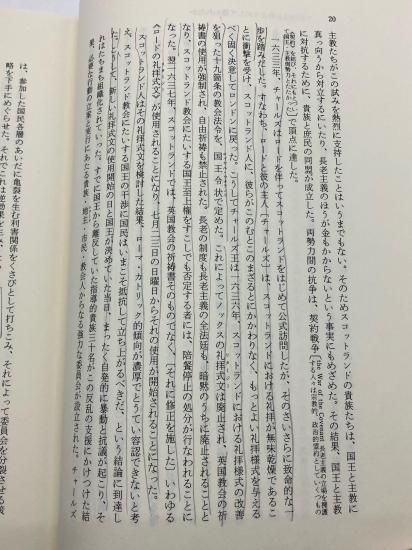 20
主教たちがこの試みを熱烈に支持したことはいうまでもない。そのためスコットランドの貴族たちは、国王と主教に
真っ向から対立するにいたり、長老主義のほうが金もかからないという事実にもめざめた。その結果、国王と主教
に対抗するために、貴族と庶民の同盟が成立した。両勢力間の抗争は、契約戦争
で頂点に達した。
一六三三年、チャールズはロードを伴ってスコットランドをはじめて公式訪問したが、そのさいさらに致命的な一
歩を踏みだした。すなわち、ロードと彼の主人(チャールズ一世)は、スコットランドにおける礼拝が無味乾燥であるこ
とに衝撃を受け、スコットランド人に、彼らがこのむとこのまざるとにかかわりなく、もっとよい礼拝様式を与える
べく固く決意してロンドンに戻った。こうしてチャールズ王は一六三六年、スコットランドにおける礼拝様式の改善
を狙った十九箇条の教会法令を、国王令状で定めた。これによってノックスの礼拝式文は廃止され、英国教会の祈
祷書の使用が強制され、自由祈祷も禁止された。長老の制度も長老主義の全法廷も、暗黙のうちに廃止されることに
なり、スコットランド教会にたいする国王至上権をすこしでも否定する者には、陪餐停止の処分が行なわれることに
なった。翌一六三七年、スコットランドでは、英国教会の祈祷書そのものでなく、「それに修正を施した」いわゆる
《ロードの礼拝式文》が使用されることになり、七月二三日の日曜日からそれの使用が開始されることになった。
スコットランド人はその礼拝式文を検討した結果、ローマ・カトリック的傾向が濃厚でとうてい容認できないと考
え、スコットランド教会にたいする国王の干渉に国民はいまこそ抵抗して立ち上がるべきだ、という結論に到達し
た。こうして、新しい礼拝式文使用開始の日と国王が決めていた当日、まったく自発的に暴動と抗議が起こり、そ
れはたちまち組織化されていった。すでに国王から離反していた指導的貴族三十名がこの反乱の支援にかけつけた結
果、必要な行動の立案と実行にあたる貴族・地主・市民・教会人からなる強力な委員会が設立された。チャールズ
は、参加した国民各層のあいだに亀裂を生む利害関係をくさびとして打ちこみ、それによって委員会を分裂させる策
略を下手にめぐらせた。それでこれは逆効果